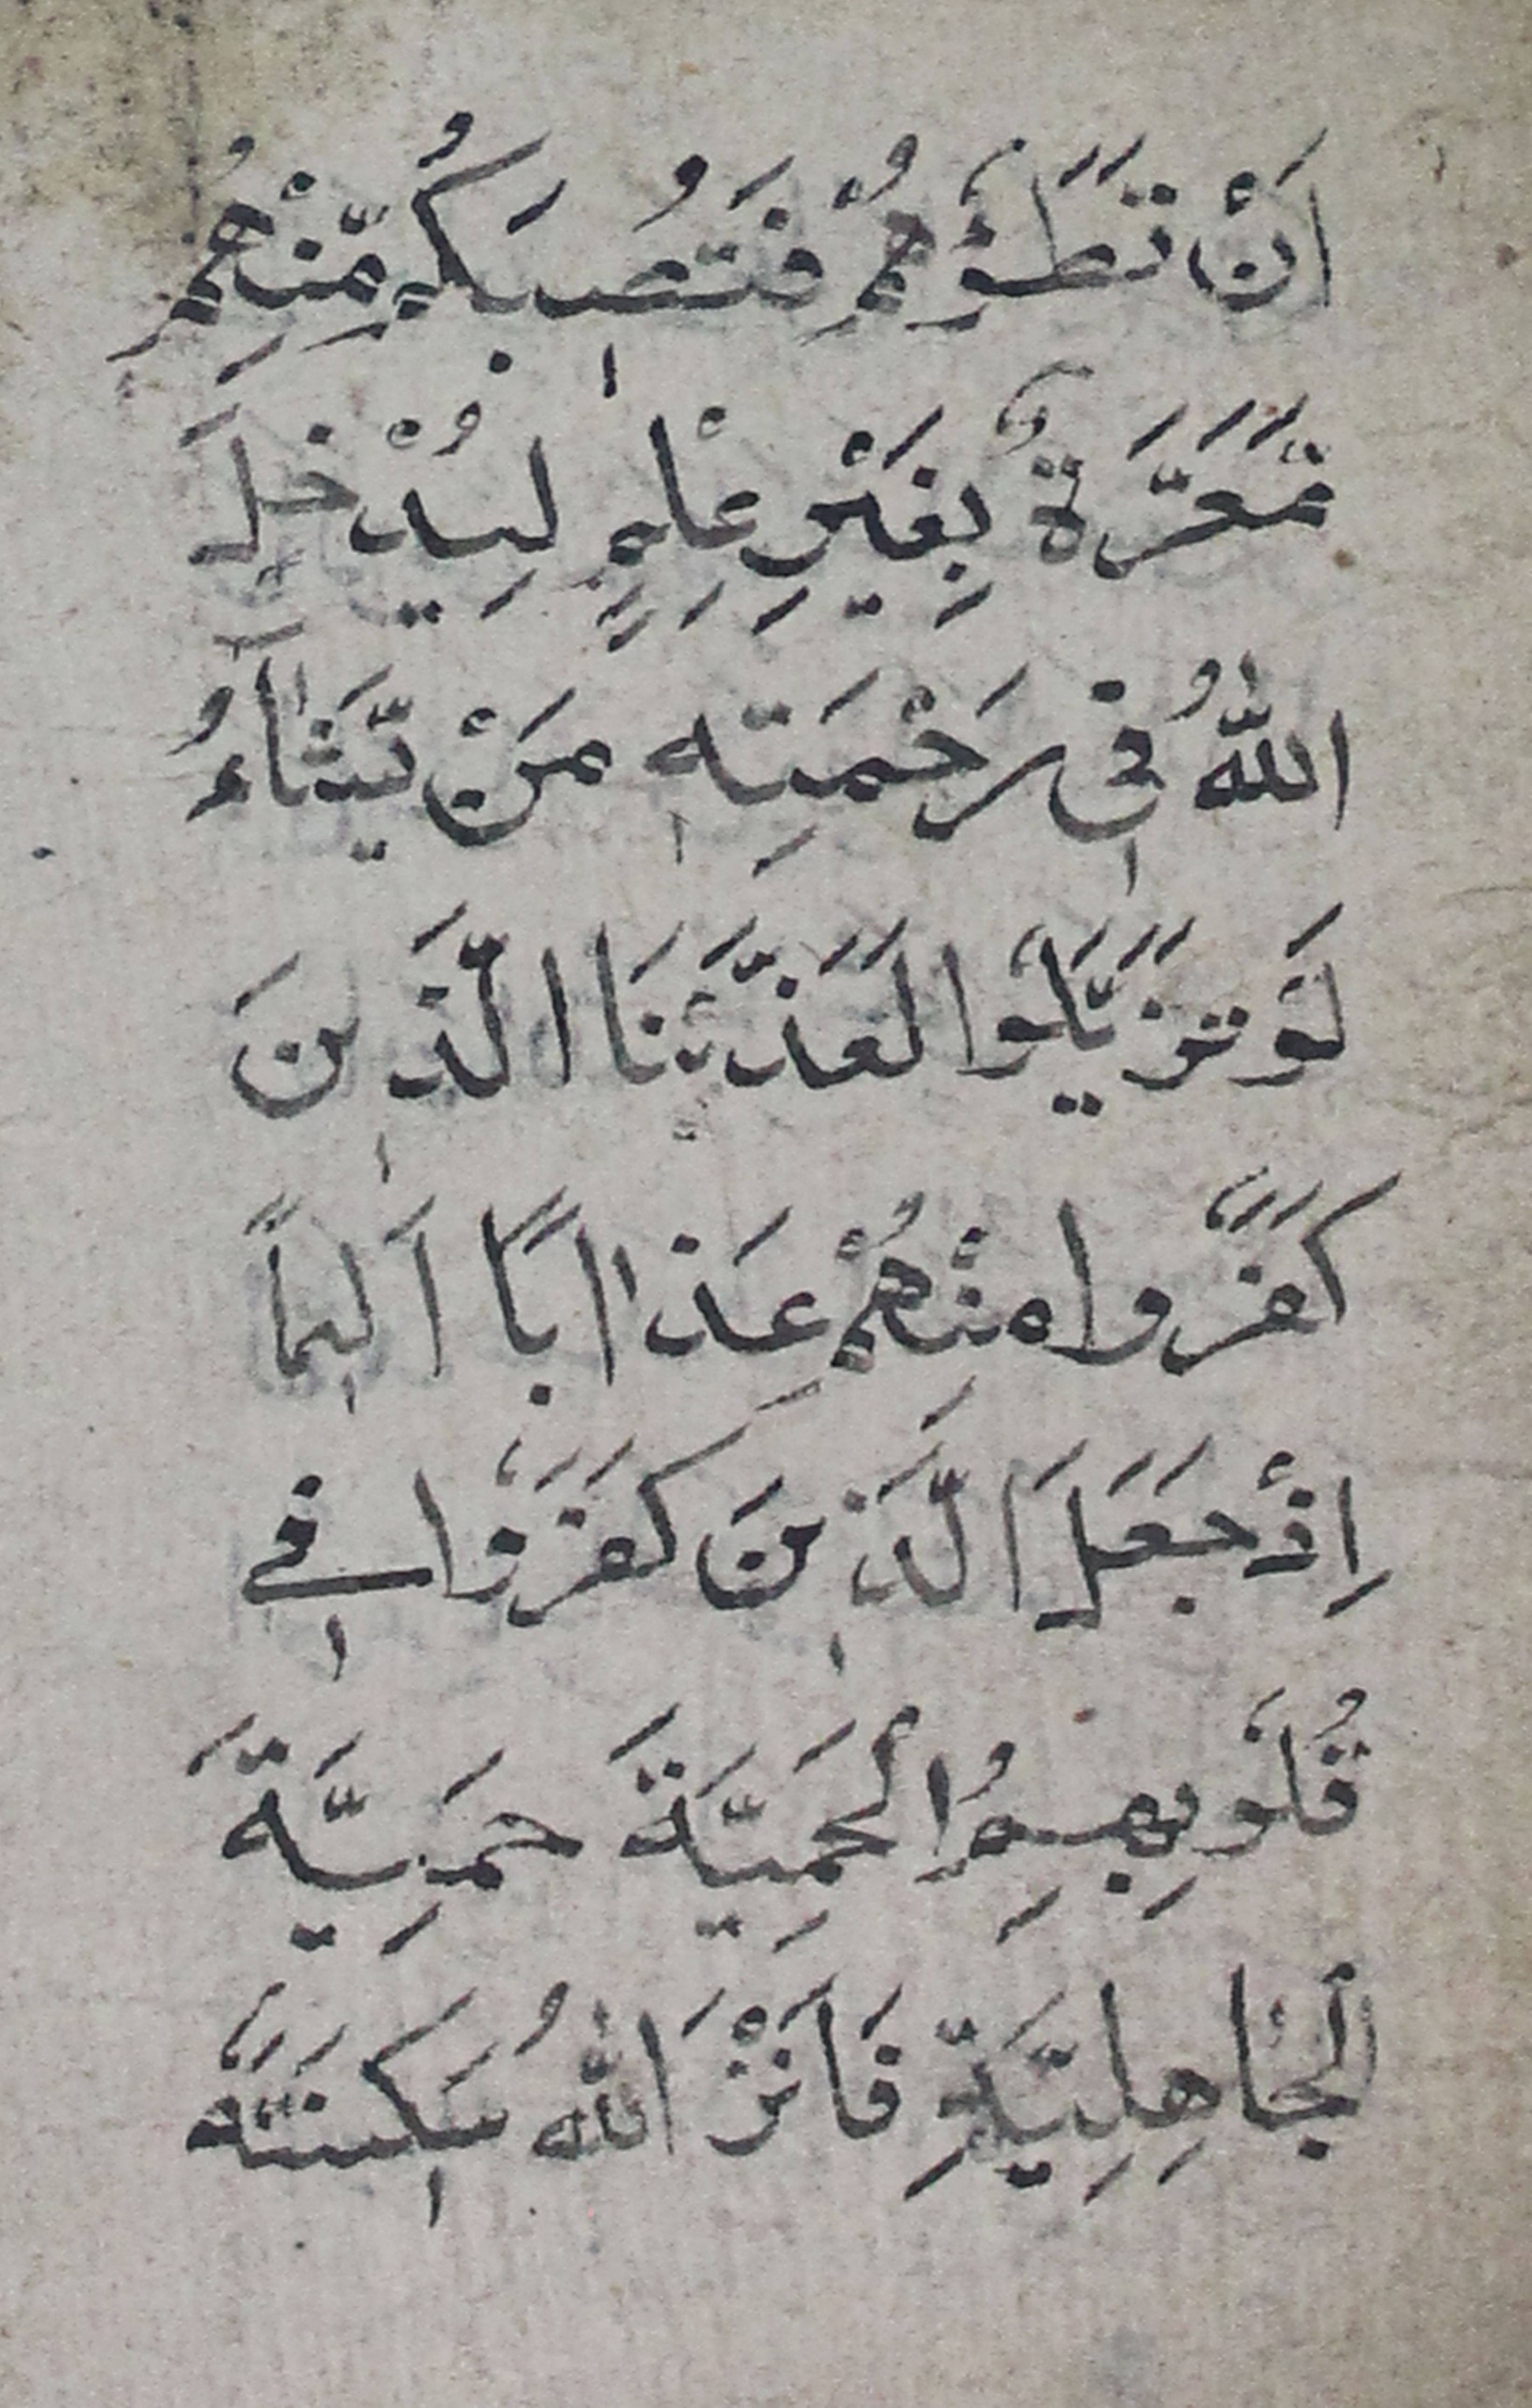 اَنْ تَطَـَٔوْهُمْ فَتُصِٖیْبَكُمْ مِّنْهُمْ
مَّعَرَّةٌ بِغَیْرِ عِلْمٍ لِیُدْخِلَ
اللّٰهُ فِیْ رَحْمَتِهٖ مَنْ یَّشَآءُ
لَوْ تَزَیَّلُوْا لَعَذَّبْنَا الَّذِیْنَ
كَفَرُوْا مِنْهُمْ عَذَابًا اَلِیْمًا
اِذْ جَعَلَ الَّذِیْنَ كَفَرُوْا فِیْ
قُلُوْبِهِمُ الْحَمِیَّةَ حَمِیَّةَ
الْجَاهِلِیَّةِ فَاَنْزَ اللّٰهُ سَكِیْنَتَهٗ